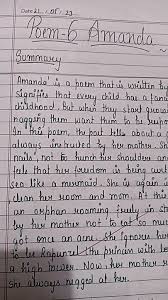 Date 21 / 05 / 23
Poem-6 Amanda
Summary
Amanda' is a poem that is written by
signifies that every child has a fanc
childhood. but when they start growin
nagging them want them to be respon
In this poem, the poet tells about a g
always instructed by her mother. She
nails', not to hunch her shoulders and
feels that her freedom is being curt
sea like a mermaid. She is again in
clean her room and room. At this
an orphan roaming freely in str
by her mother not to eat so mu
got once an acne. She ignores her
to be Rapunzel (the princess with be
a high tower. Now, her mother re
she always nagged at her.